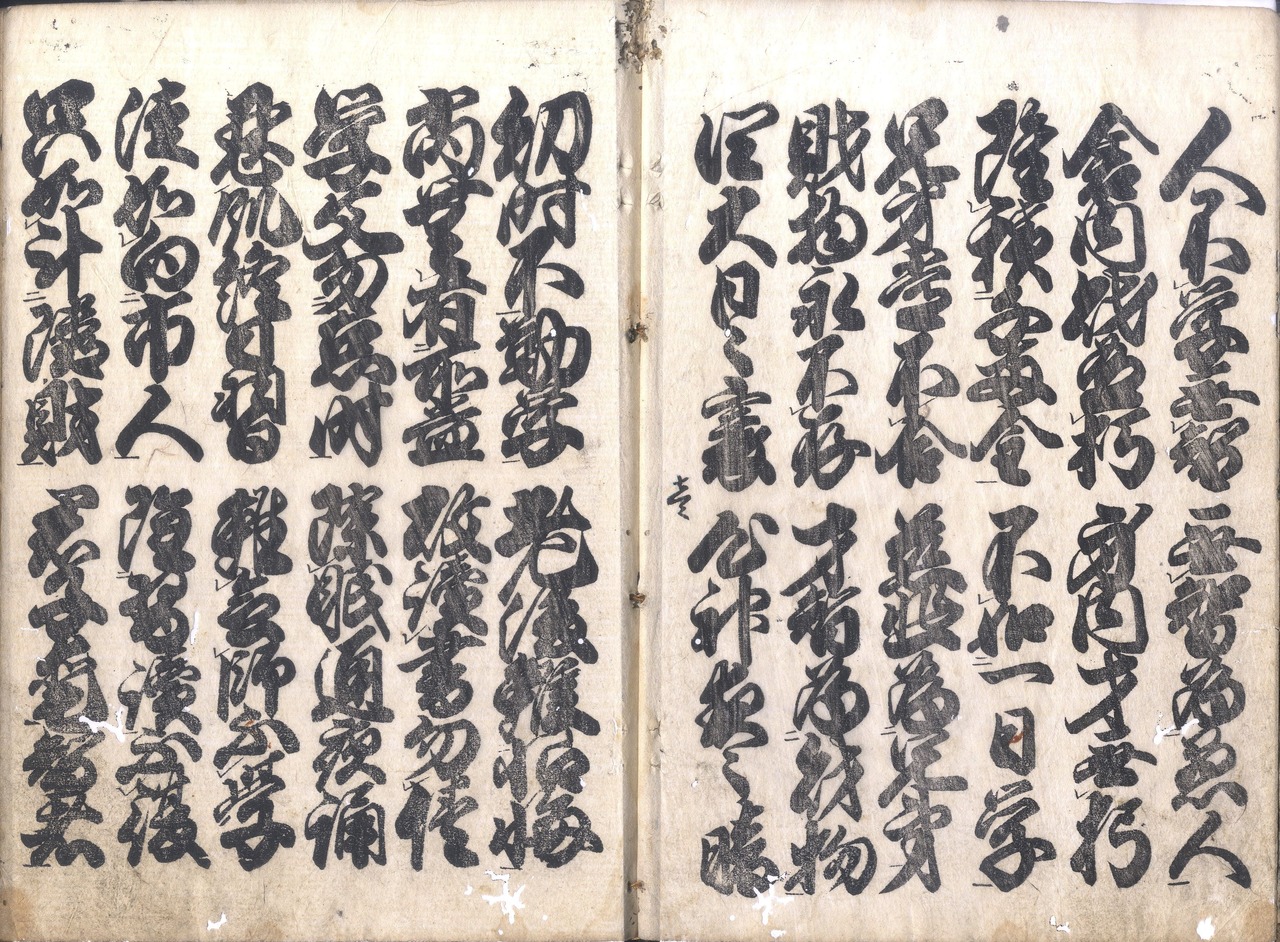 人不学無智 無智為愚人
倉内財有朽 身内才無朽
雖積千両金 不如一日学
兄弟常不合 慈悲為兄弟
財物永不存 才智為財物
四大日々衰 心神夜々暗
壱
幼時不勤学 老後雖恨悔
尚無有所益 故読書勿倦
学文勿怠時 除眠通夜誦
忍飢終日習 雖会師不学
徒如向市人 雖習読不復
只如計隣財 君子愛智者